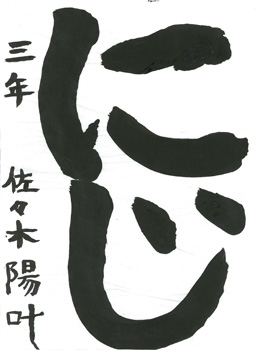 にじ
三年 佐々木陽叶